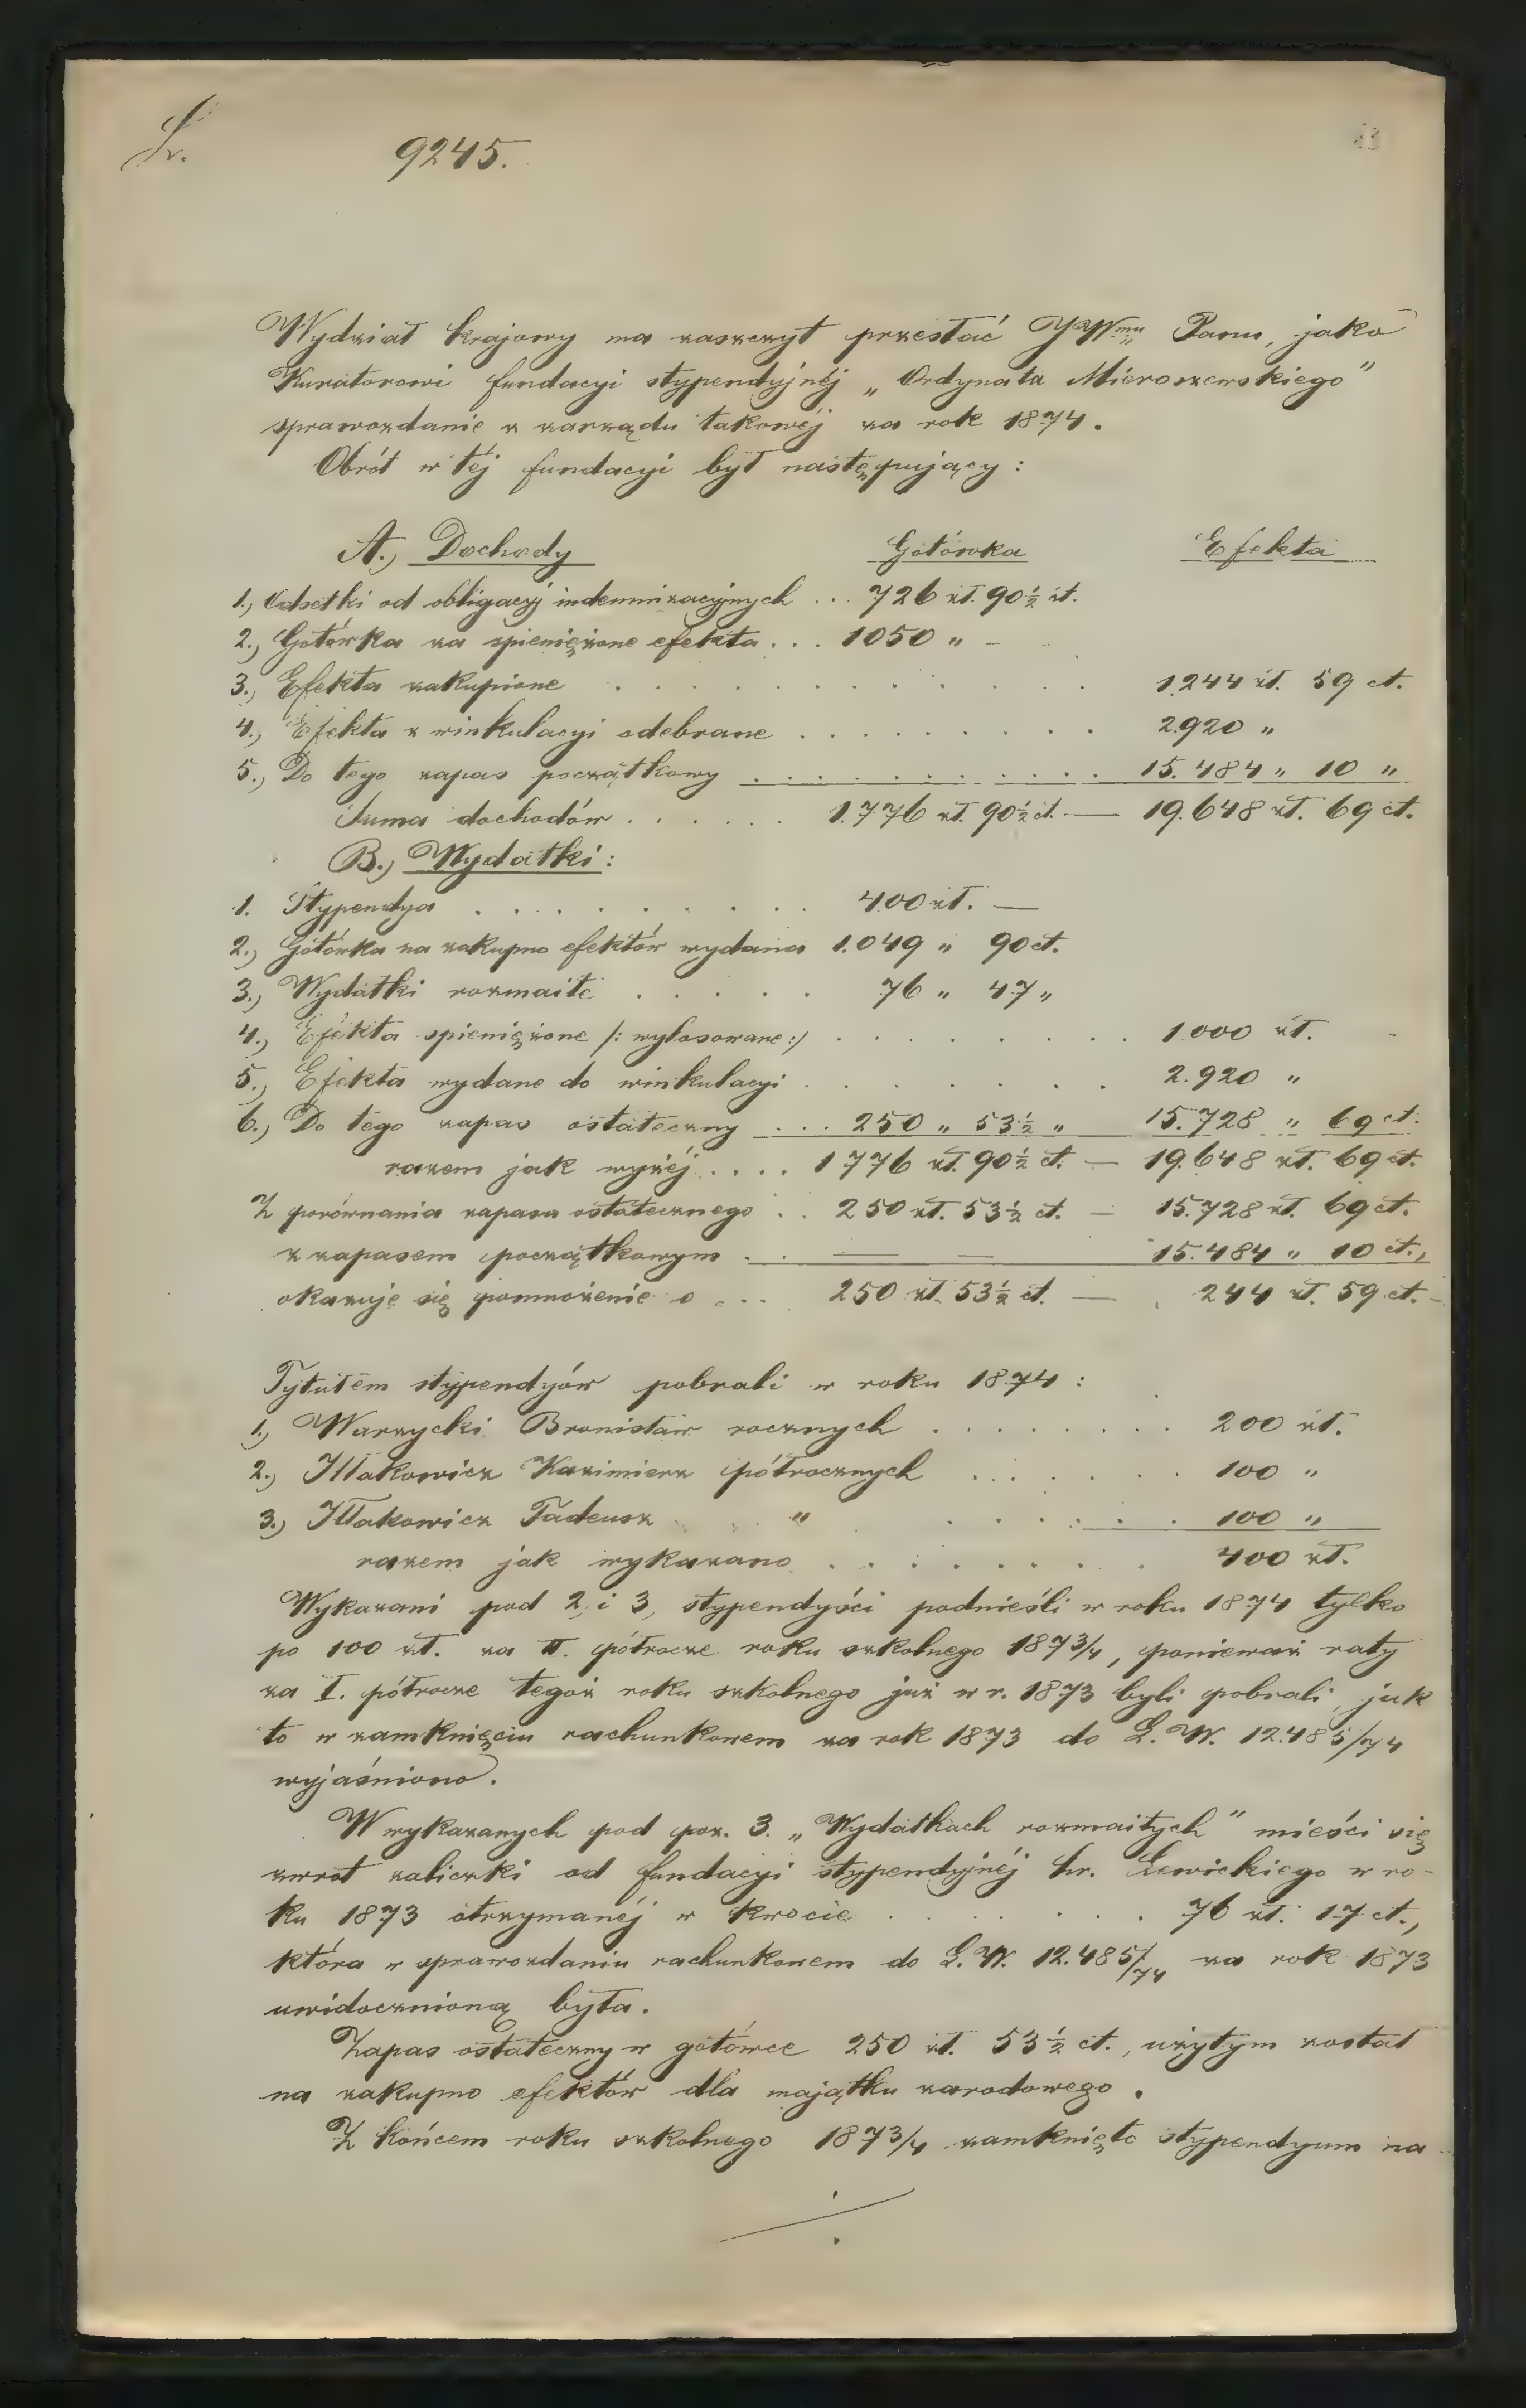 Lr. 9245.
83
Wydział krajowy ma zaszczyt przesłać JWmu Panu, jako
Kuratorowi fundacyi stypendyjnéj „Ordynata Mieroszewskiego”
sprawozdanie z zarządu takowéj za rok 1874.
Obrót w téj fundacyi był następujący:
A.) Dochody Gotówka Efekta
1.) Odsetki od obligacyj indemnizacyjnych ... 726 zł. 90½ ct.
2.) Gotówka za spieniężone efekta... 1050 „ —
3.) Efekta zakupione . . . . . . . . . . . 1.244 zł. 59 ct.
4.) Efekta z winkulacyi odebrane . . . . . . . . . 2.920 „
5.) Do tego zapas początkowy . . . . . . . . . . 15.484 „ 10 „
Suma dochodów . . . . . . 1.776 zł. 90½ ct. — 19.648 zł. 69 ct.
B.) Wydatki:
1. Stypendya . . . . . . . . . . 400 zł. —
2.) Gotówka na zakupno efektów wydana 1.049 „ 90 ct.
3.) Wydatki rozmaite . . . . . 76 „ 47 „
4.) Efekta spieniężone /: wylosowane :/ . . . . . . . . 1.000 zł.
5.) Efekta wydane do winkulacyi . . . . . . . 2.920 „
6.) Do tego zapas ostateczny . . . 250 „ 53½ „ 15.728 „ 69 ct.
razem jak wyżéj . . . . 1776 zł. 90½ ct. — 19.648 zł. 69 ct.
Z porównania zapasu ostatecznego . . 250 zł. 53½ ct. — 15.728 zł. 69 ct.
z zapasem początkowym . . — — 15.484 „ 10 ct.,
okazuje się pomnożenie o . . . 250 zł. 53½ ct. — 244 zł. 59 ct. —
Tytułem stypendyów pobrali w roku 1874:
1.) Warzycki Bronisław rocznych . . . . . . . . 200 zł.
2.) Iłłakowicz Kazimierz półrocznych . . . . . . 100 „
3.) Iłłakowicz Tadeusz „ . . . . . . 100 „
razem jak wykazano . . . . . . . . 400 zł.
Wykazani pod 2, i 3, stypendyści podnieśli w roku 1874 tylko
po 100 zł. za II. półrocze roku szkolnego 1873/4, ponieważ raty
za I. półrocze tegoż roku szkolnego już w r. 1873 byli pobrali, jak
to w zamknięciu rachunkowem za rok 1873 do L. W. 12.485/74
wyjaśniono.
W wykazanych pod poz. 3. „Wydatkach rozmaitych” mieści się
zwrot zaliczki od fundacyi stypendyjnéj hr. Lewickiego w ro-
ku 1873 otrzymanéj w kwocie . . . . . . . 76 zł. 17 ct.,
która w sprawozdaniu rachunkowem do L. W. 12.485/74 za rok 1873
uwidocznioną była.
Zapas ostateczny w gotówce 250 zł. 53½ ct., użytym został
na zakupno efektów dla majątku zarodowego.
Z końcem roku szkolnego 1873/4 zamknięto stypendyum na-
./.